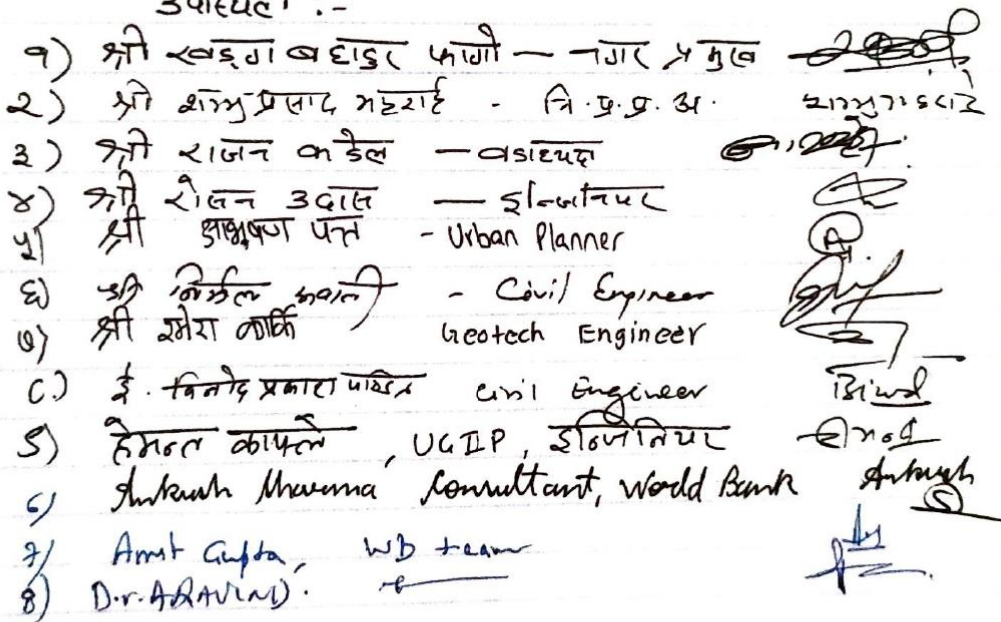 उपस्थिती :-
१) श्री खड्ग बहादुर फागो — नगर प्रमुख
२) श्री शम्भु प्रसाद भट्टराई - नि.प्र.प्र.अ.
३) श्री राजन कडेल — वडाध्यक्ष
४) श्री रोसन उदास — इन्जिनियर
५) श्री आभूषण पन्त - Urban Planner
६) श्री निर्मल - Civil Engineer
७) श्री रमेश कार्कि Geotech Engineer
८.) ई. विनोद प्रकाश पण्डित Civil Engineer Binod
5) हेमन्त काफ्ले, UGIIP, इन्जिनियर हेमन्त
6) Ankush Sharma Consultant, World Bank Ankush
7) Amit Gupta, WB team
8) Dr. ARAVIND.